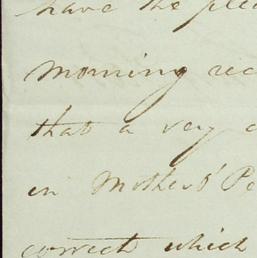 have the plea
morning rec
that a very c
in Mother's Pe
correct which